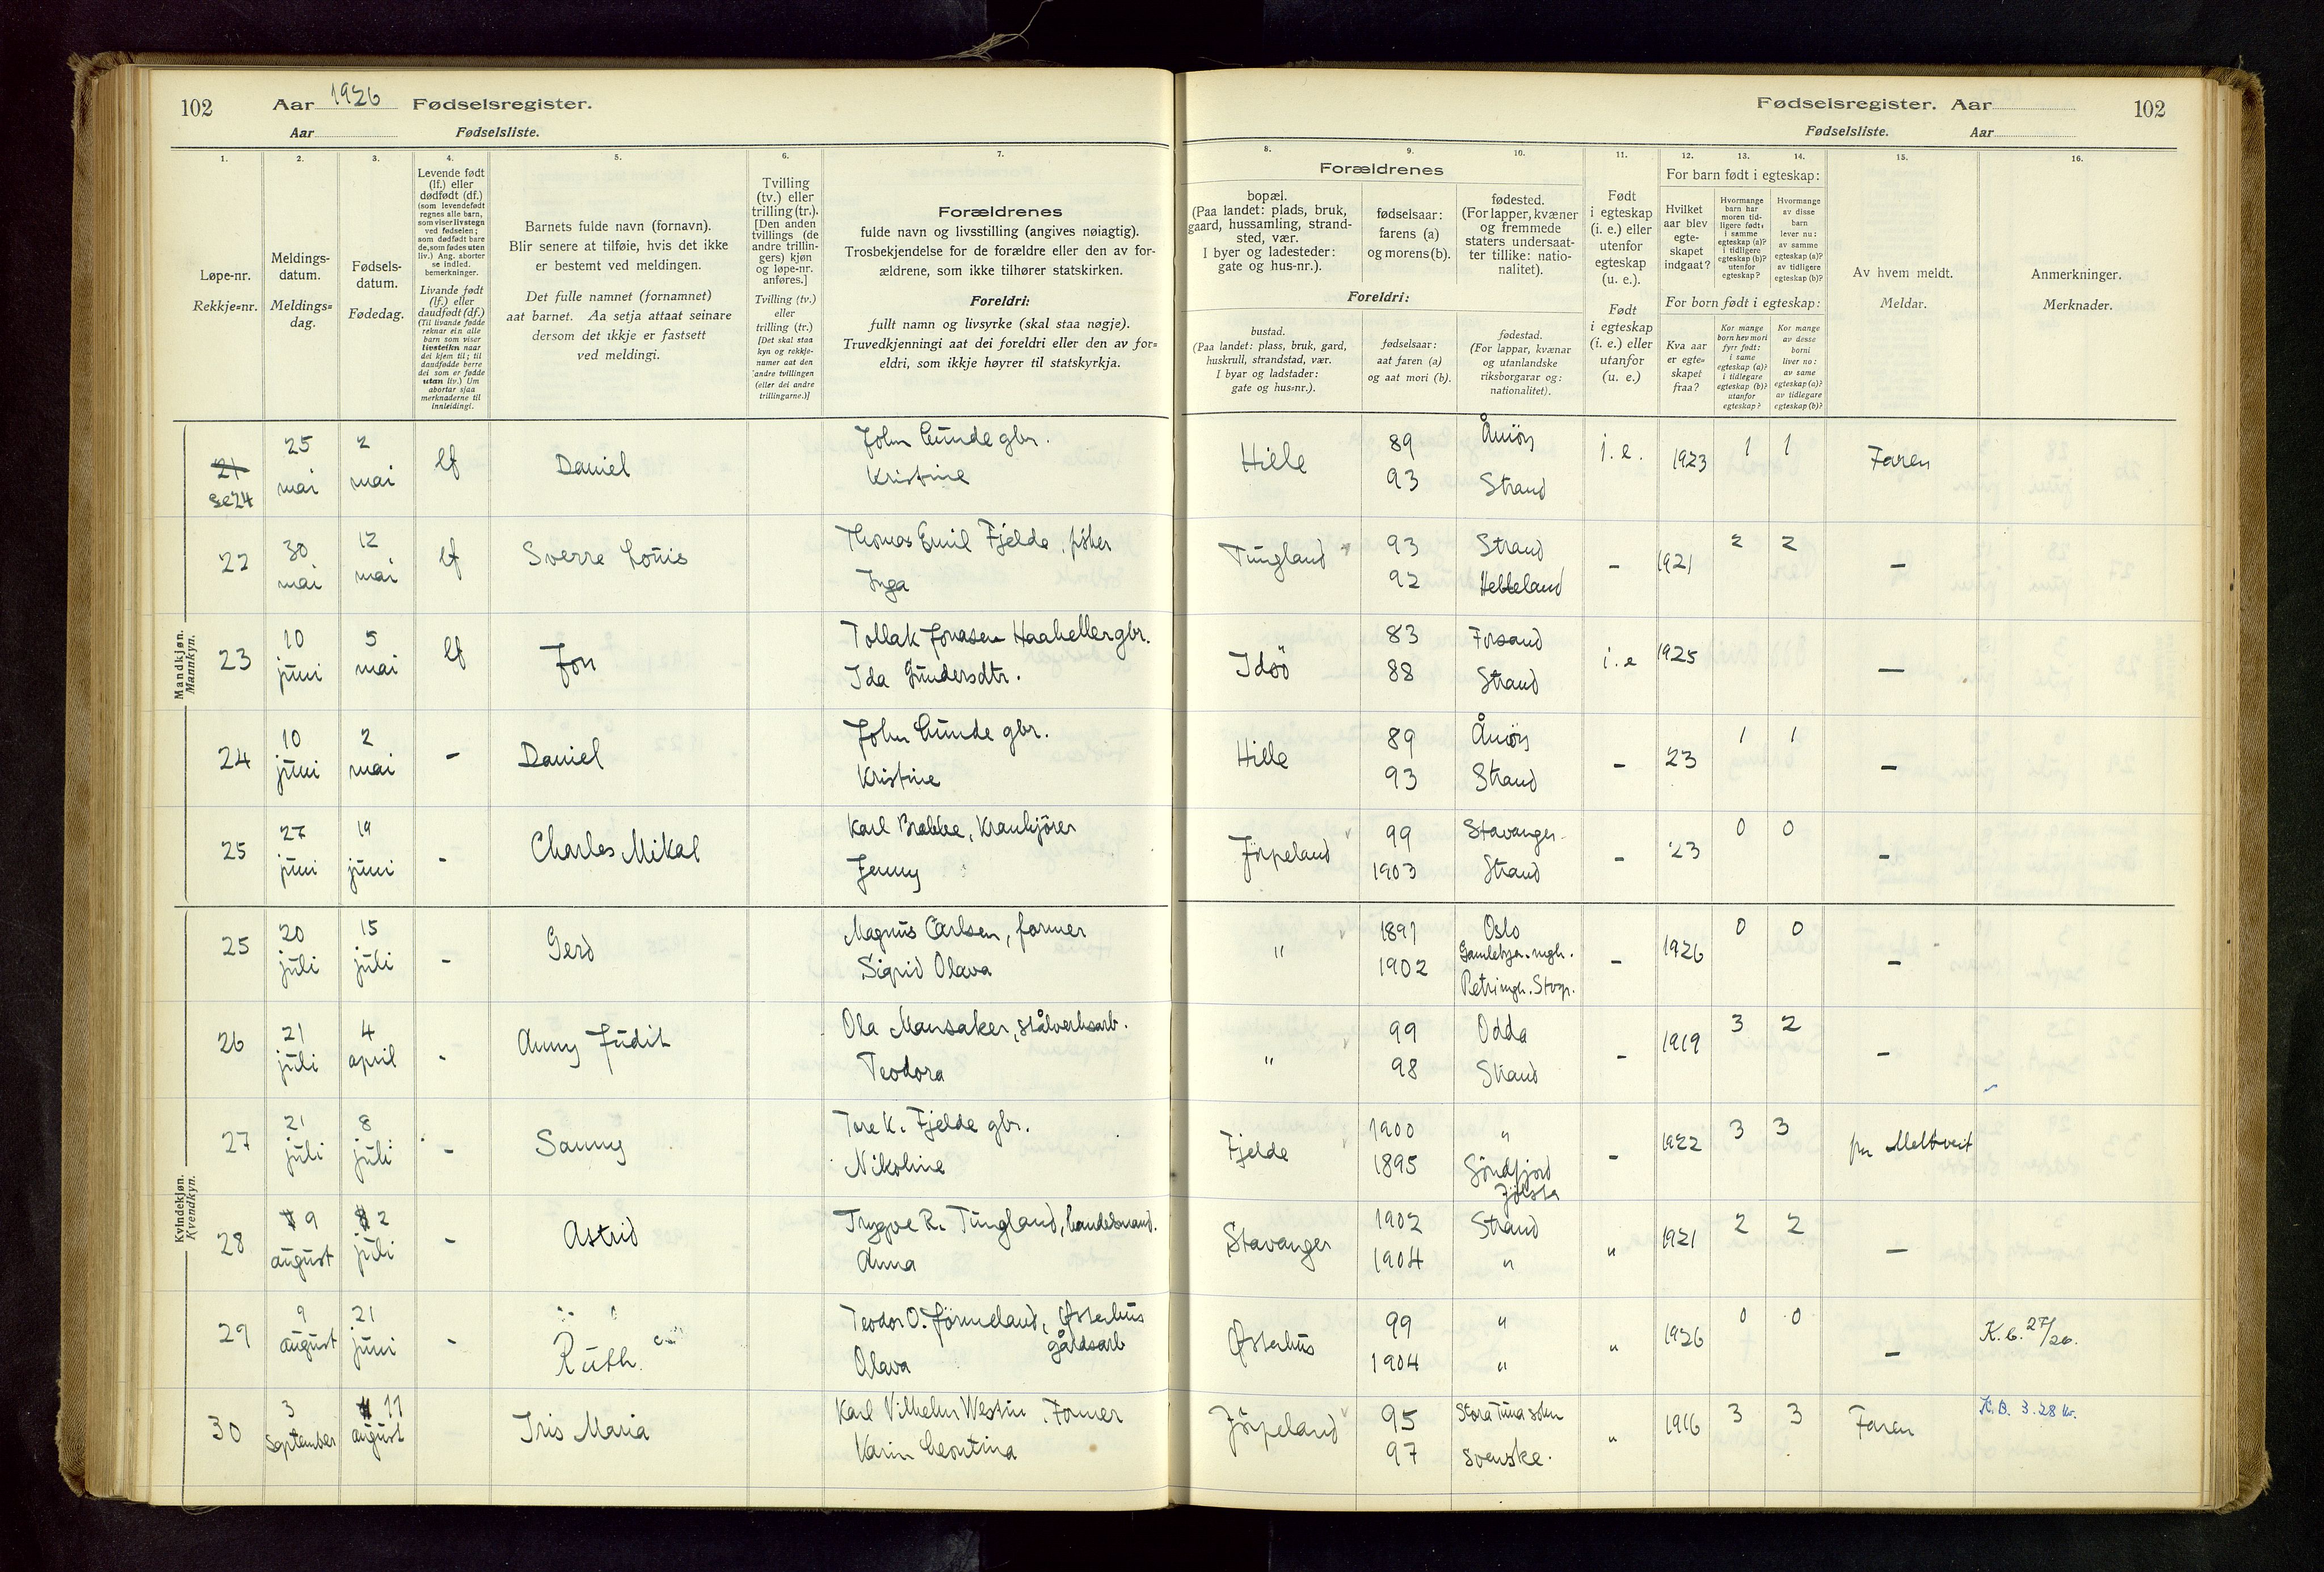 102 Aar 1926 Fødselsregister.
Aar Fødselsliste.
Fødselsregister. Aar 102
Fødselsliste. Aar
1. 2. 3. 4. 5. 6. 7. 8. 9. 10. 11. 12. 13. 14. 15. 16.
Løpe-nr.
Rekkje=nr.
Meldings-
datum.
Meldings=
dag.
Fødsels-
datum.
Fødedag.
Levende født
(lf.) eller
dødfødt (df.)
(som levendefødt
regnes alle barn,
som viser livstegn
ved fødselen;
som dødfødt bare
de, som fødes uten
liv.) Ang. aborter
se indled.
bemerkninger.
Livande født
(lf.) eller
daudfødt (df.)
(Til livande fødde
reknar ein alle
barn som viser
livsteikn naar
dei kjem til; til
daudfødde berre
dei som er fødde
utan liv.) Um
abortar sjaa
merknaderne til
innleidingi.
Barnets fulde navn (fornavn).
Blir senere at tilføie, hvis det ikke
er bestemt ved meldingen.
Det fulle namnet (fornamnet)
aat barnet. Aa setja attaat seinare
dersom det ikkje er fastsett
ved meldingi.
Tvilling
(tv.) eller
trilling (tr.).
[Den anden
tvillings (de
andre trillin-
gers) kjøn
og løpe-nr.
anføres.]
Tvilling (tv.)
eller
trilling (tr.)
[Det skal staa
kyn og rekkje-
numer aat den
andre tvillingen
(eller dei andre
trillingarne.)]
Forældrenes
fulde navn og livsstilling (angives nøiagtig).
Trosbekjendelse for de forældre eller den av for-
ældrene, som ikke tilhører statskirken.
Foreldri:
fullt namn og livsyrke (skal staa nøgje).
Truvedkjenningi aat dei foreldri eller den av for=
eldri, som ikkje høyrer til statskyrkja.
Forældrenes
bopæl.
(Paa landet: plads, bruk,
gaard, hussamling, strand-
sted, vær.
I byer og ladesteder:
gate og hus-nr.).
fødselsaar:
farens (a)
og morens (b).
fødested.
(For lapper, kvæner
og fremmede
staters undersaat-
ter tillike: natio-
nalitet).
Foreldri:
bustad.
(Paa landet: plass, bruk, gard,
huskrull, strandstad, vær.
I byar og ladstader:
gate og hus=nr.).
fødselsaar:
aat faren (a)
og aat mori (b).
fødestad.
(For lappar, kvænar
og utanlandske
riksborgarar og:
nationalitet).
Født
i egteskap
(i. e.) eller
utenfor
egteskap
(u. e.).
Født
i egteskap
(i. e.) eller
utanfor
(u. e.)
For barn født i egteskap:
Hvilket
aar blev
egte-
skapet
indgaat?
Hvormange
barn har
moren tid-
ligere født:
i samme
egteskap (a)?
i tidligere
egteskap (b)?
utenfor
egteskap?
Hvormange
av disse
barn
lever nu:
av samme
egteskap (a)?
av tidligere
egteskap (b)?
For born født i egteskap:
Kva aar
er egte=
skapet
fraa?
Kor mange
born hev mori
fyrr født:
i same
egteskap (a)?
i tidlegare
egteskap (b)?
utanfor
egteskap?
Kor mange
av desse
borni
liver no:
av same
egteskap (a)?
av tidlegare
egteskap (b)?
Av hvem meldt.
Meldar.
Anmerkninger.
Merknader.
Mandkjøn.
Mannkyn.
21 se 24 25 mai 2 mai lf Daniel John Lunde gbr. Kristine Hille 89 93 Åmöy Strand i. e. 1923 1 1 Faren
22 30 mai 12 mai lf Sverre Louis Thomas Emil Fjelde, fisker Inga Tungland 93 92 Strand Helleland - 1921 2 2 —
23 10 juni 5 mai lf Jon Tollak Jonasen Haaheller gbr. Ida Gundersdtr. Idsö 83 88 Forsand Strand i. e 1925 —
24 10 juni 2 mai - Daniel John Lunde gbr. Kristine Hille 89 93 Åmöy Strand - 23 1 1 —
25 27 juni 19 juni - Charles Mikal Karl Brekke, Krankjører Jenny Jörpeland 99 1903 Stavanger Strand - 23 0 0 -
Kvindekjøn.
Kvendkyn.
25 20 juli 15 juli - Gerd Magnus Carlsen, former Sigrid Olava " 1897 1902 Oslo Gamlebyen mgh. Petri mgh. Stvgr. - 1926 0 0 -
26 21 juli 4 april - Anny Judit Ola Mansaker, stålverksarb. Teodora " 99 98 Odda Strand - 1919 3 2 -
27 21 juli 8 juli - Sanny Tore K. Fjelde gbr. Nikoline Fjelde 1900 1895 " Söndfjord Jölster - 1922 3 3 pr Meltveit
28 9 august 2 juli - Astrid Trygve R. Tungland, handelsmand. Anna Stavanger 1902 1904 Strand " " 1921 2 2 —
29 9 august 21 juni - Ruth. Teodor O. Jörmeland, Østerhus gårdsarb Olava Østerhus 99 1904 " " " 1926 0 0 - K. b. 27/26.
30 3 September 11 august Iris Maria Karl Vilhelm Westin. Former Karin Leontina Jörpeland 95 97 Stora Tuna sokn svenske. " 1916 3 3 Faren K. B. 3.28 Kr.